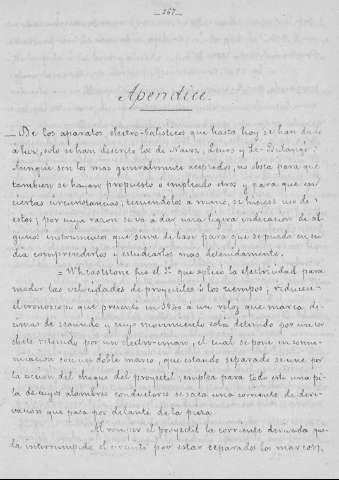 _167_
Apendice.
_ De los aparatos electro-balisticos que hasta hoy se han dado
á luz, solo se han descrito los de Navez, Leurs y Le-Boulangé:
Aunque son los mas generalmente aceptados, no obsta para que
tambien se hayan propuesto o empleado otros y para que en
ciertas circunstancias, teniendolos a mano, se hiciese uso de
estos; por cuya razon se vá a dar una ligera indicacion de al
gunos instrumentos que sirva de base para que se pueda en su
dia comprenderlos y estudiarlos mas detenidamente.
= Wheatstone fue el 1º que aplicó la electricidad para
medir las velocidades de proyectiles ó los tiempos; reduciase
el cronoscopo que presentó en 1840 á un reloj que marca de-
cimas de segundo y cuyo movimiento está detenido por un co
chete retenido por un electro-iman, el cual se pone en comu-
nicacion con un doble marco, que estando separado se une por
la accion del choque del proyectil; emplea para todo esto una pi
la de cuyos alambres conductores se saca una corriente de deri-
vacion que pasa por delante de la pieza.
Al romper el proyectil la corriente derivada que-
da interrumpido el circuito por estar separados los marcos,